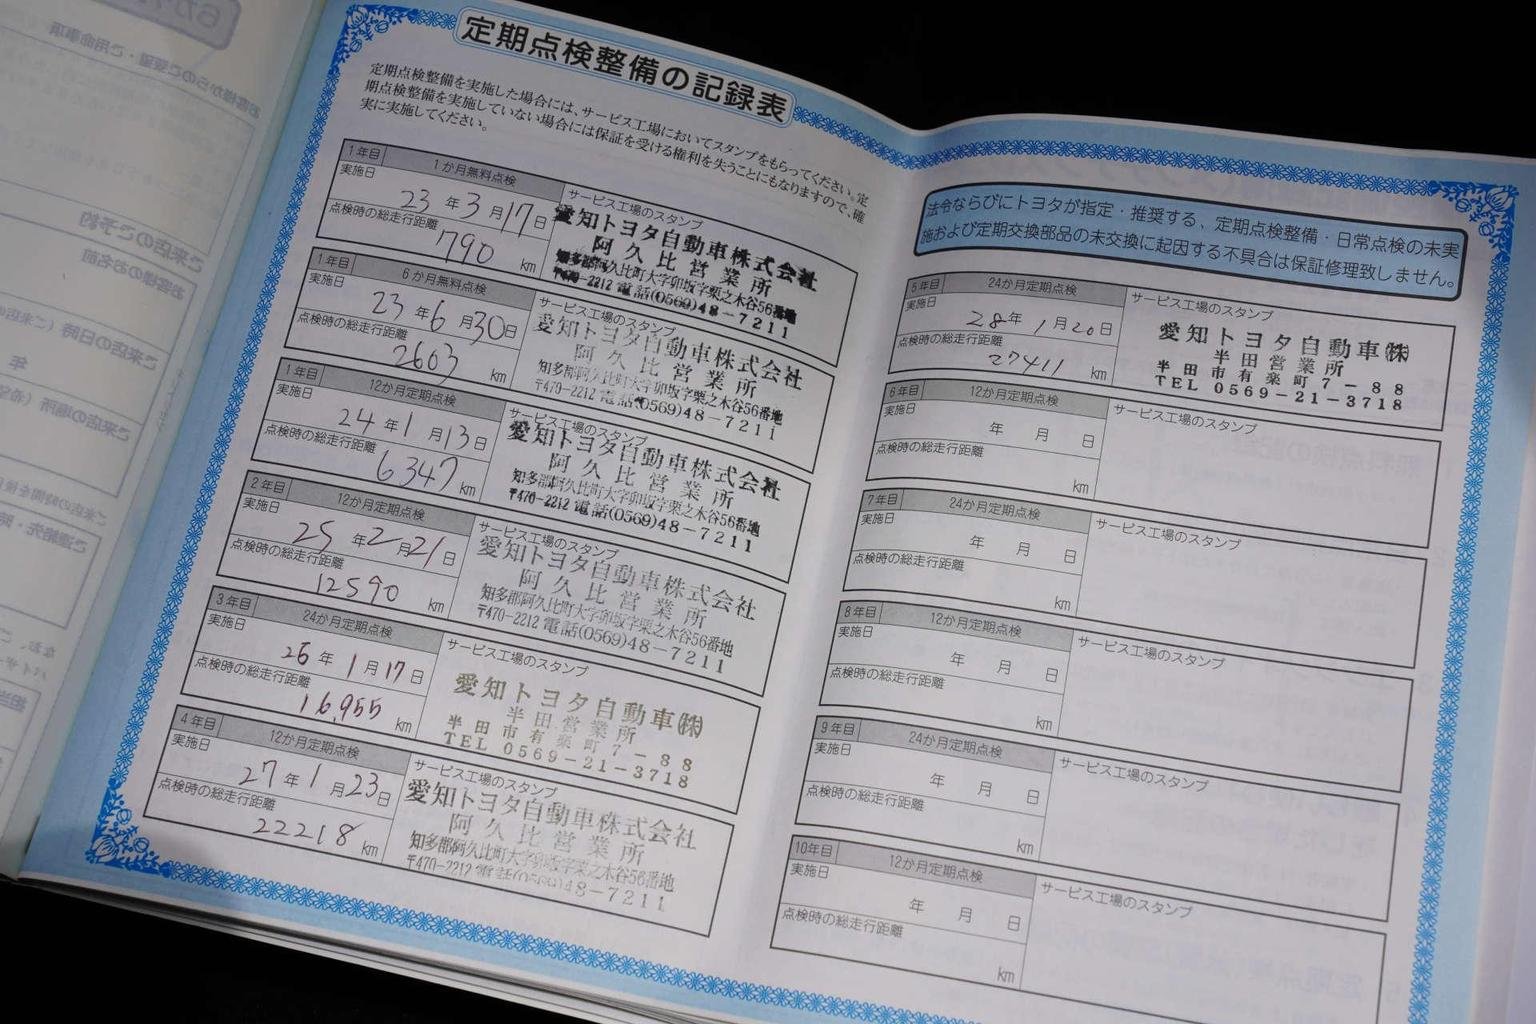 定期点検整備の記録表
定期点検整備を実施した場合には、サービス工場においてスタンプをもらってください。定
期点検整備を実施していない場合には保証を受ける権利を失うことにもなりますので、確
実に実施してください。
1年目 1か月無料点検
実施日
23年3月17日
点検時の総走行距離
790 km
サービス工場のスタンプ
愛知トヨタ自動車株式会社
阿久比営業所
知多郡阿久比町大字卯坂字栗之木谷56番地
〒470-2212 電話(0569)48-7211
1年目 6か月無料点検
実施日
23年6月30日
点検時の総走行距離
2603 km
サービス工場のスタンプ
愛知トヨタ自動車株式会社
阿久比営業所
知多郡阿久比町大字卯坂字栗之木谷56番地
〒470-2212 電話(0569)48-7211
1年目 12か月定期点検
実施日
24年1月13日
点検時の総走行距離
6347 km
サービス工場のスタンプ
愛知トヨタ自動車株式会社
阿久比営業所
知多郡阿久比町大字卯坂字栗之木谷56番地
〒470-2212 電話(0569)48-7211
2年目 12か月定期点検
実施日
25年2月21日
点検時の総走行距離
12590 km
サービス工場のスタンプ
愛知トヨタ自動車株式会社
阿久比営業所
知多郡阿久比町大字卯坂字栗之木谷56番地
〒470-2212 電話(0569)48-7211
3年目 24か月定期点検
実施日
26年1月17日
点検時の総走行距離
16,955 km
サービス工場のスタンプ
愛知トヨタ自動車㈱
半田営業所
半田市有楽町7-88
TEL 0569-21-3718
4年目 12か月定期点検
実施日
27年1月23日
点検時の総走行距離
22218 km
サービス工場のスタンプ
愛知トヨタ自動車株式会社
阿久比営業所
知多郡阿久比町大字卯坂字栗之木谷56番地
〒470-2212 電話(0569)48-7211
法令ならびにトヨタが指定・推奨する、定期点検整備・日常点検の未実
施および定期交換部品の未交換に起因する不具合は保証修理致しません。
5年目 24か月定期点検
実施日
28年1月20日
点検時の総走行距離
27411 km
サービス工場のスタンプ
愛知トヨタ自動車㈱
半田営業所
半田市有楽町7-88
TEL 0569-21-3718
6年目 12か月定期点検
実施日
年 月 日
点検時の総走行距離
km
サービス工場のスタンプ
7年目 24か月定期点検
実施日
年 月 日
点検時の総走行距離
km
サービス工場のスタンプ
8年目 12か月定期点検
実施日
年 月 日
点検時の総走行距離
km
サービス工場のスタンプ
9年目 24か月定期点検
実施日
年 月 日
点検時の総走行距離
km
サービス工場のスタンプ
10年目 12か月定期点検
実施日
年 月 日
点検時の総走行距離
km
サービス工場のスタンプ